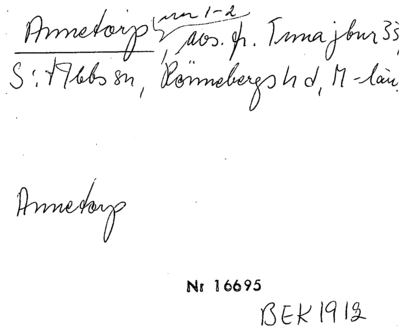 Annetorp nr 1-2
avs. fr. Tunnabjur 33,
S: t Ibbs sn, Rönnebergs hd, M-län
Annetorp
Nr 16695
BEK 1912